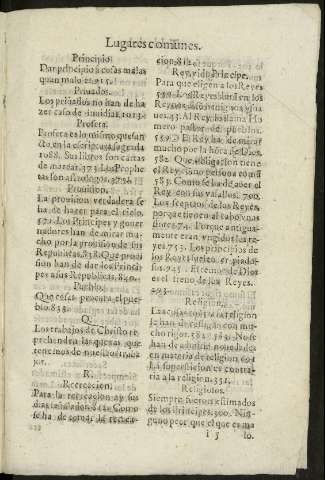 Lugares comunes.
Principio.
Dar principio à cosas malas
quan malo es. 915.
Priuados.
Los priuados no han de ha
zer casa de inuidias. 1013.
Profeta.
Profeta es lo mismo que san
cto, en la escriptura sagrada
1088. Sus libros son cartas
de marear. 373. Los Prophe
tas son astrologos. 373.
Prouision.
La prouision verdadera se
ha de hazer para el cielo.
572. Los Principes y gouer
nadores han de mirar mu
cho por la prouision de sus
Republicas. 838. Que proui
sion han de dar los Princi
pes à sus Republicas. 840.
Pueblo.
Que cosas procura el pue
blo. 838.
Q.
Los trabajos de Christo re
prehenden las quexas que
tenemos de nuestro traba
jo.
R.
Recreacion.
Para la recreacion ay sus
dias señalados. 812. Como
se ha de tomar la recrea-
cion. 812.
Rey, vide Principe.
Para que eligen a los Reyes
559. Los Reyes
43. Al Rey llama Ho
mero pastor de pueblos.
559. El Rey ha de mirar
mucho por la hōra de Dios.
582. Que obligacion tiene
el Rey como persona comũ
583. Como se ha de auer el
Rey con sus vasallos. 700.
Los sceptros de los Reyes,
porque tienen al cabo vnas
flores. 74. Porque antigua-
mente eran vngidos los re-
yes. 753. Los principios de
los Reyes suelen ser piado-
sos. 745. El temor de Dios
es el freno de los Reyes.
Religion.
Las cosas contra la religion
se han de riñan con mu-
cho rigor. 582. 583. No se
han de admitir nouedades
en materia de religion. 601
La supersticion es contra-
ria a la religion. 552.
Religiosos.
Siempre fueron estimados
de los Principes. 500. Nin-
guno peor que el que es ma
i 5
lo.